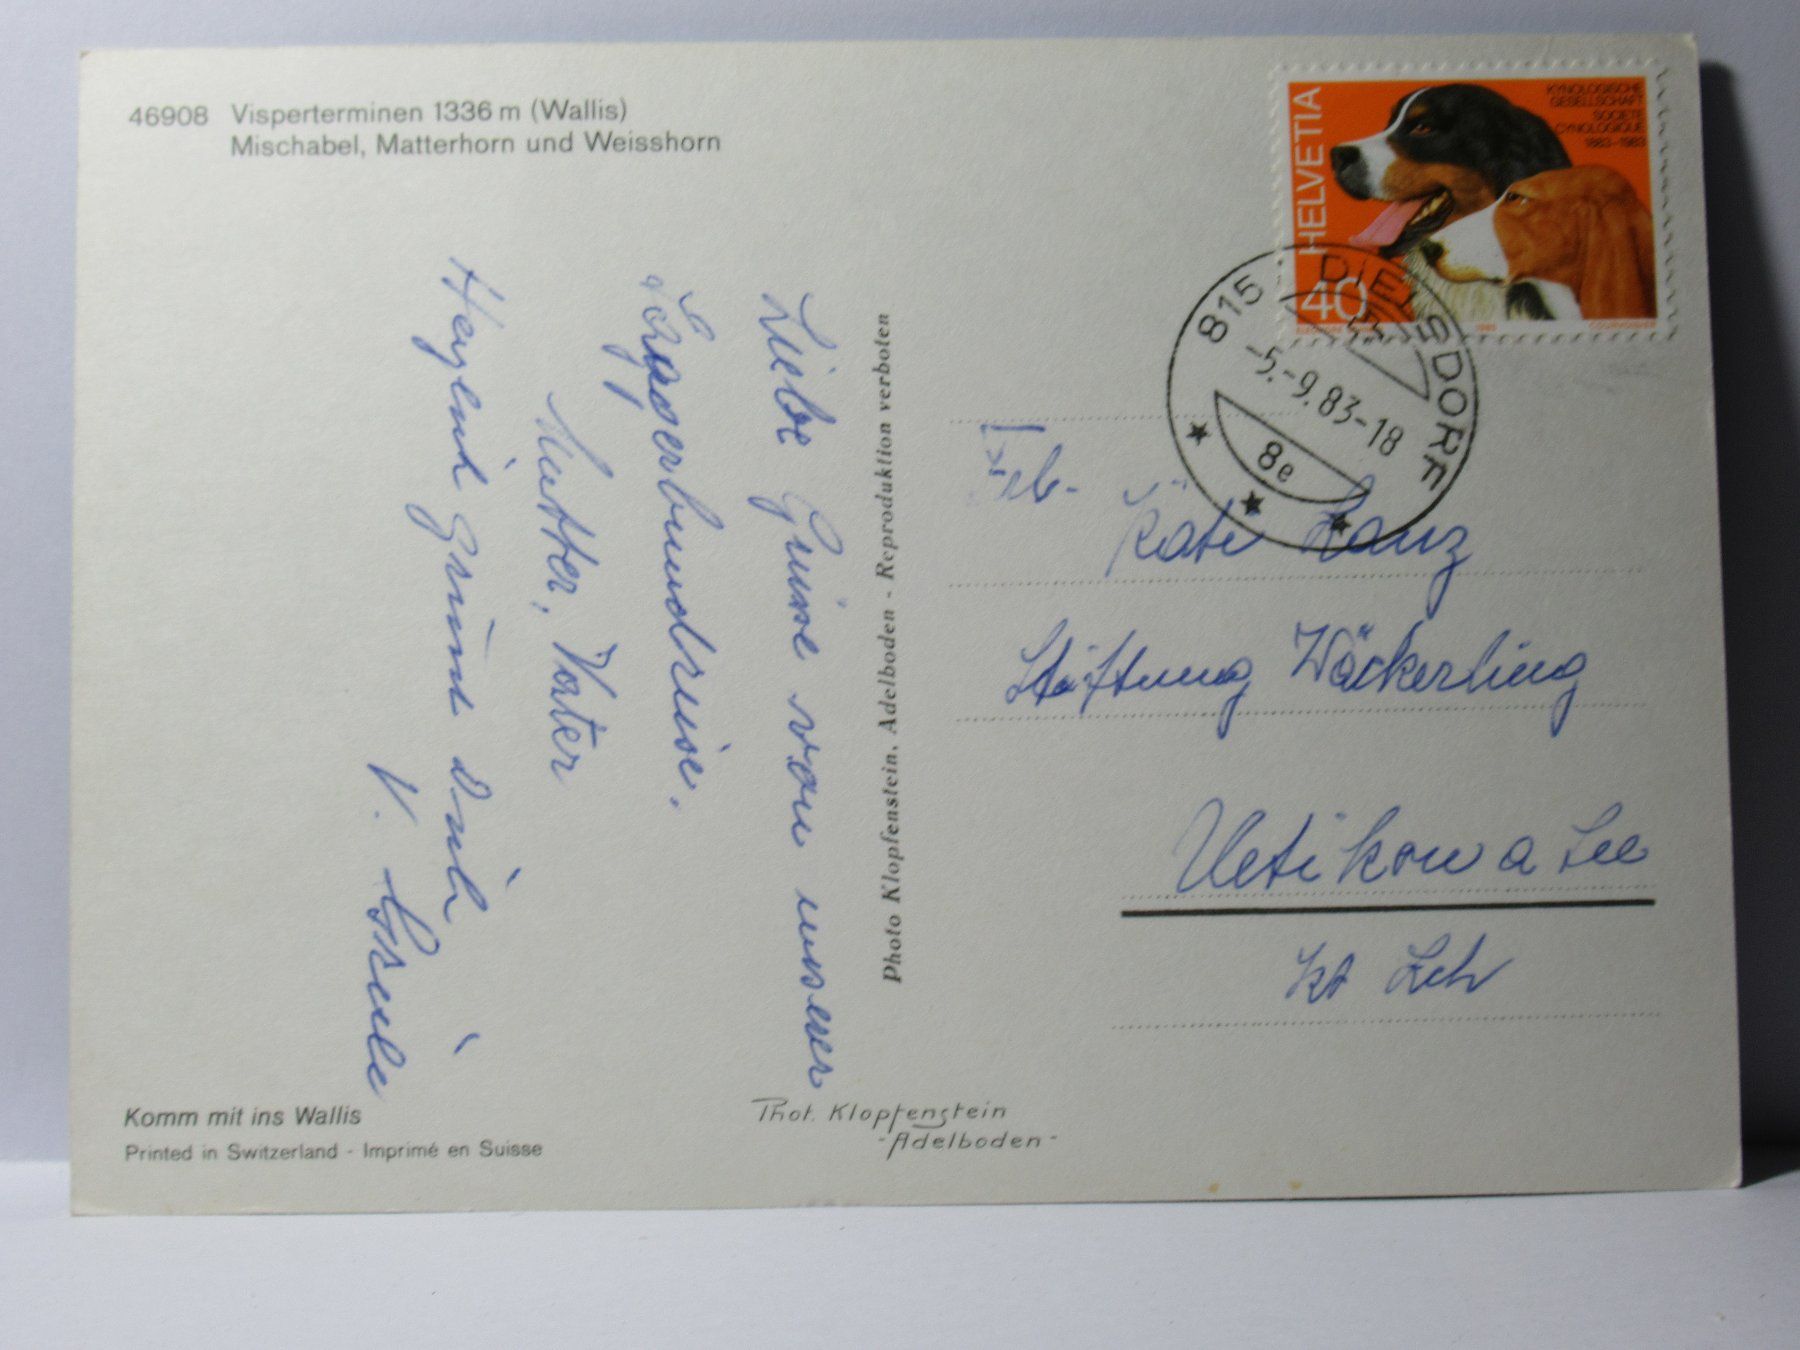 46908 Visperterminen 1336 m (Wallis)
Mischabel, Matterhorn und Weisshorn
HELVETIA
KYNOLOGISCHE
GESELLSCHAFT
SOCIETE
CYNOLOGIQUE
1883-1983
40
1983
COURVOISIER
815 DIELSDORF
-5.-9.83-18
8e
Liebe Grüsse von unser
Mutter, Vater
V. Gisele
Photo Klopfenstein, Adelboden - Reproduktion verboten
Käti Lanz
Stiftung Wäckerling
Uetikon a See
Kt Zch
Komm mit ins Wallis
Printed in Switzerland - Imprimé en Suisse
Phot. Klopfenstein
- Adelboden -